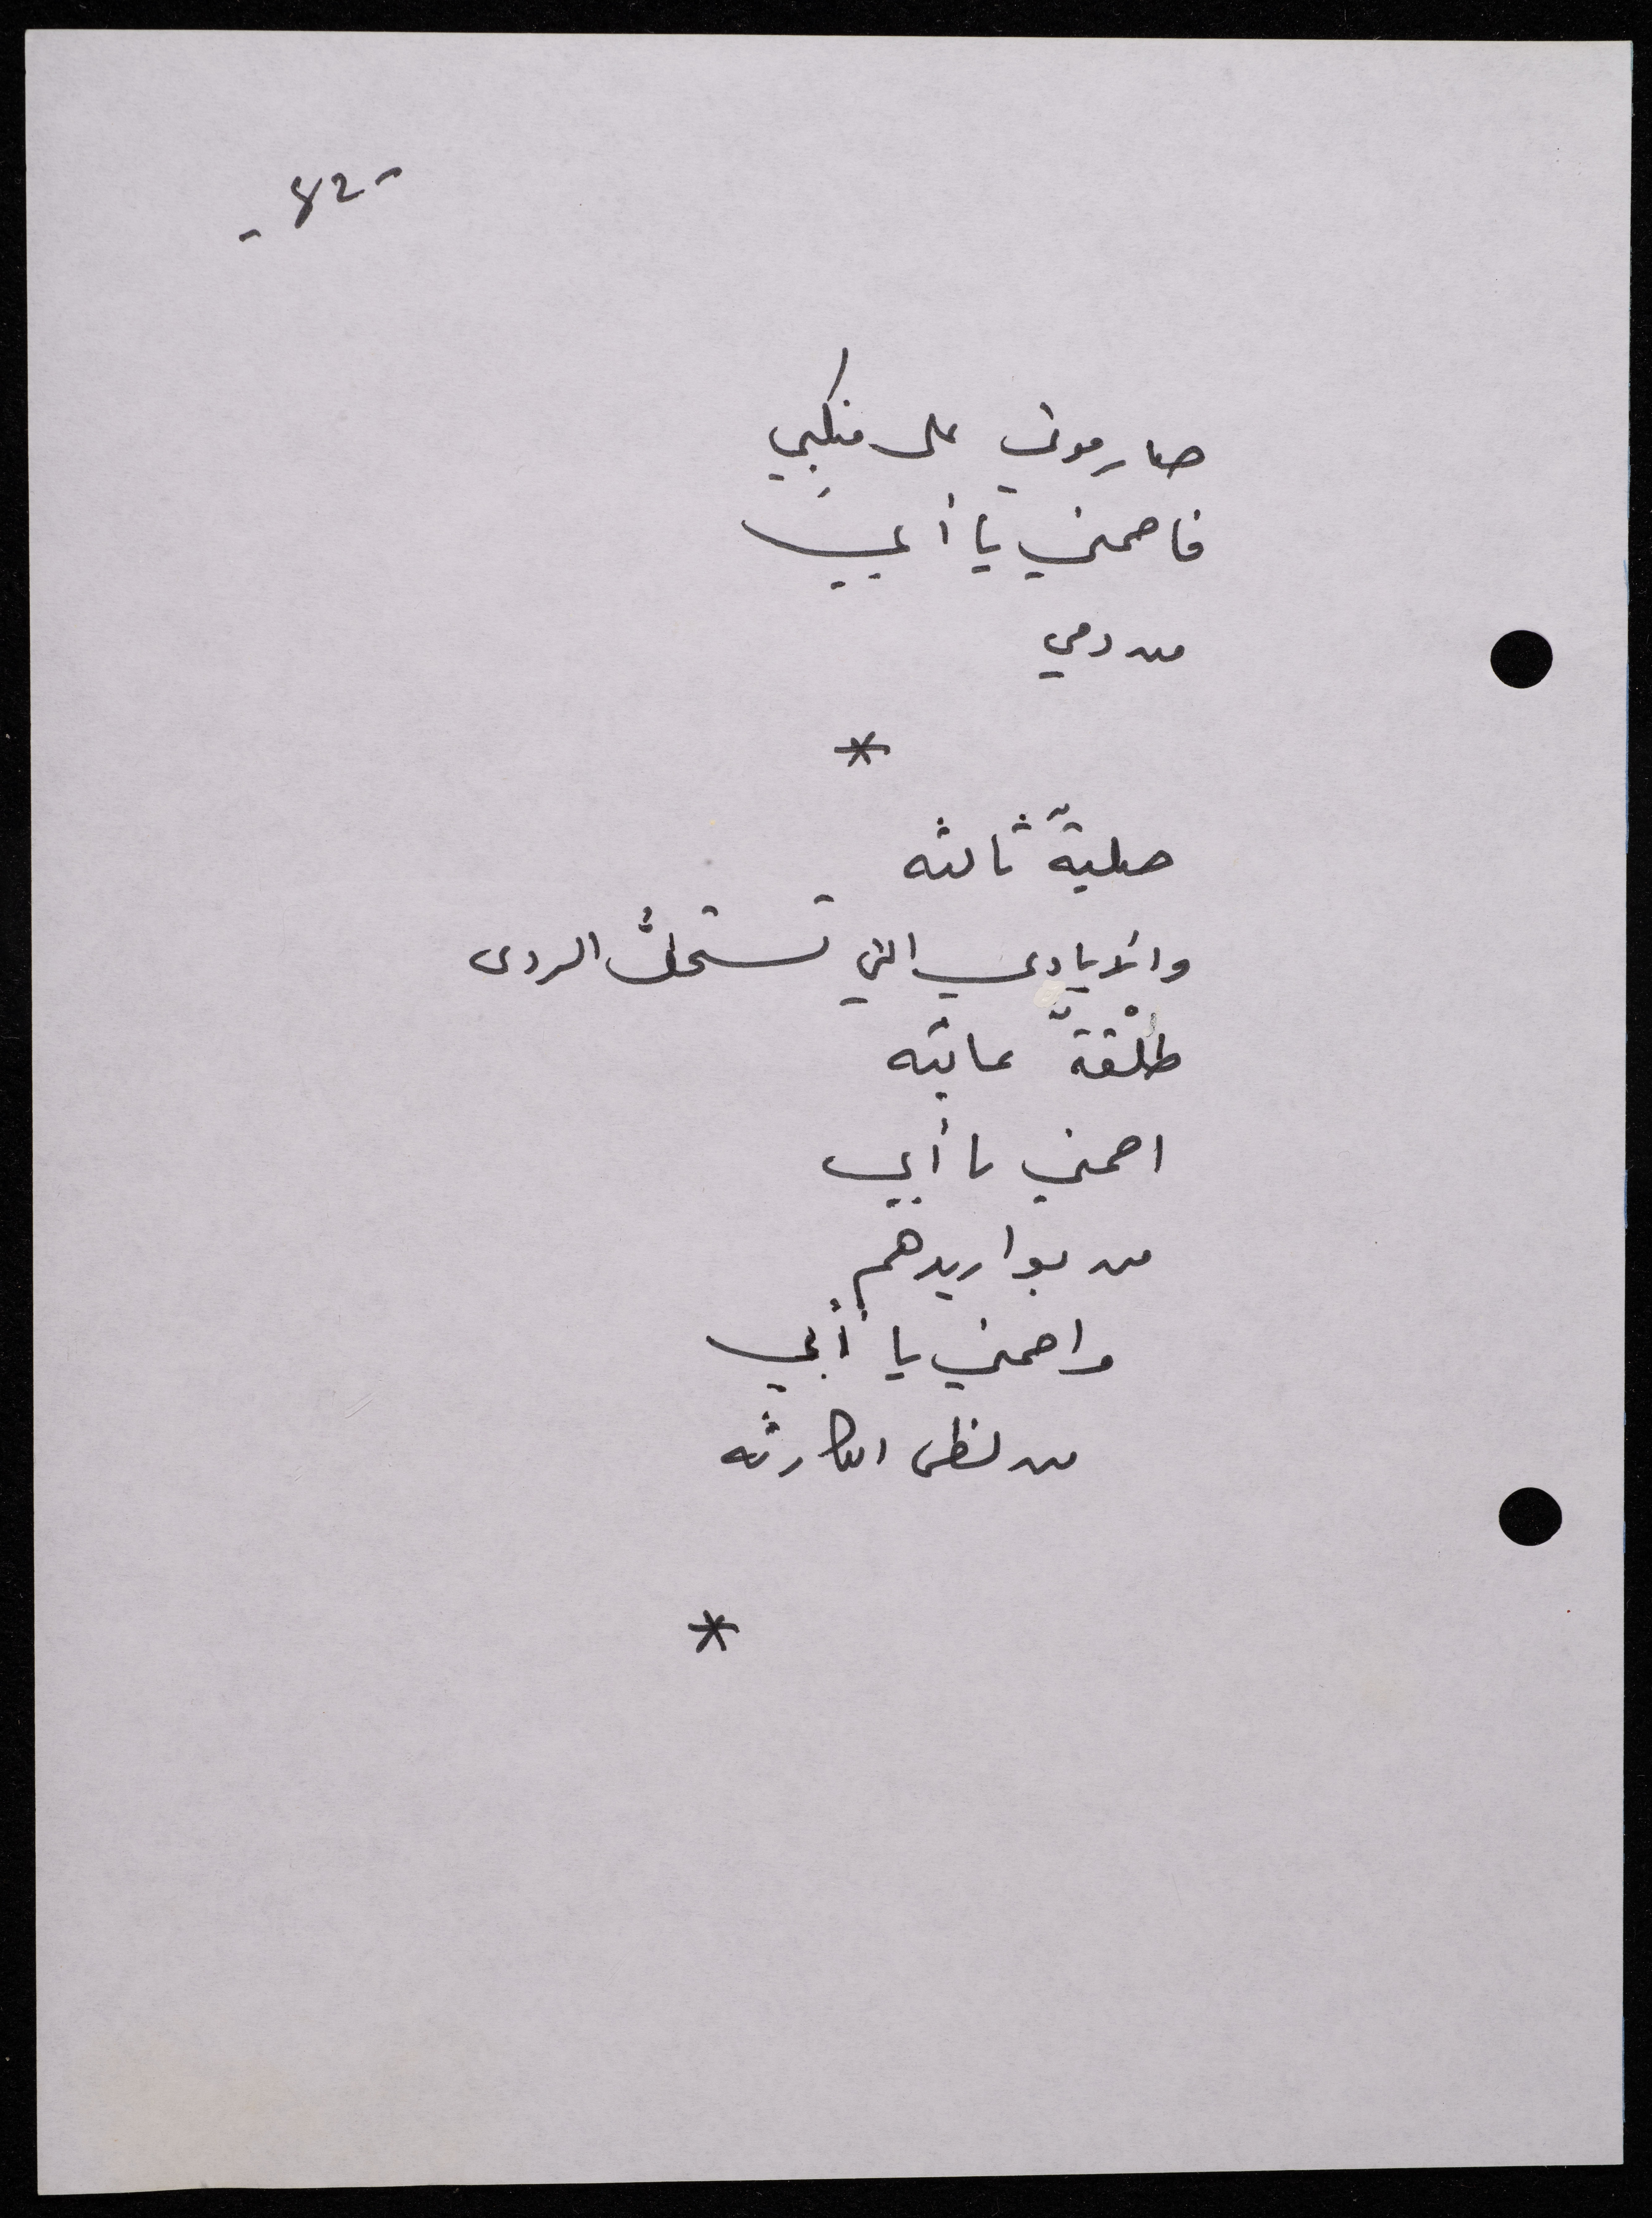 - 82 -
صار موتي على منكبي
فاحمني يا أبي
من دمي
*
صليةٌ ثالثه
والأيادي التي تستحلُّ الردى
طلْقةٌ عابثه
احمني يا أبي
من بواريدهم
واحمني يا أبي
من لظى الكارثه
*